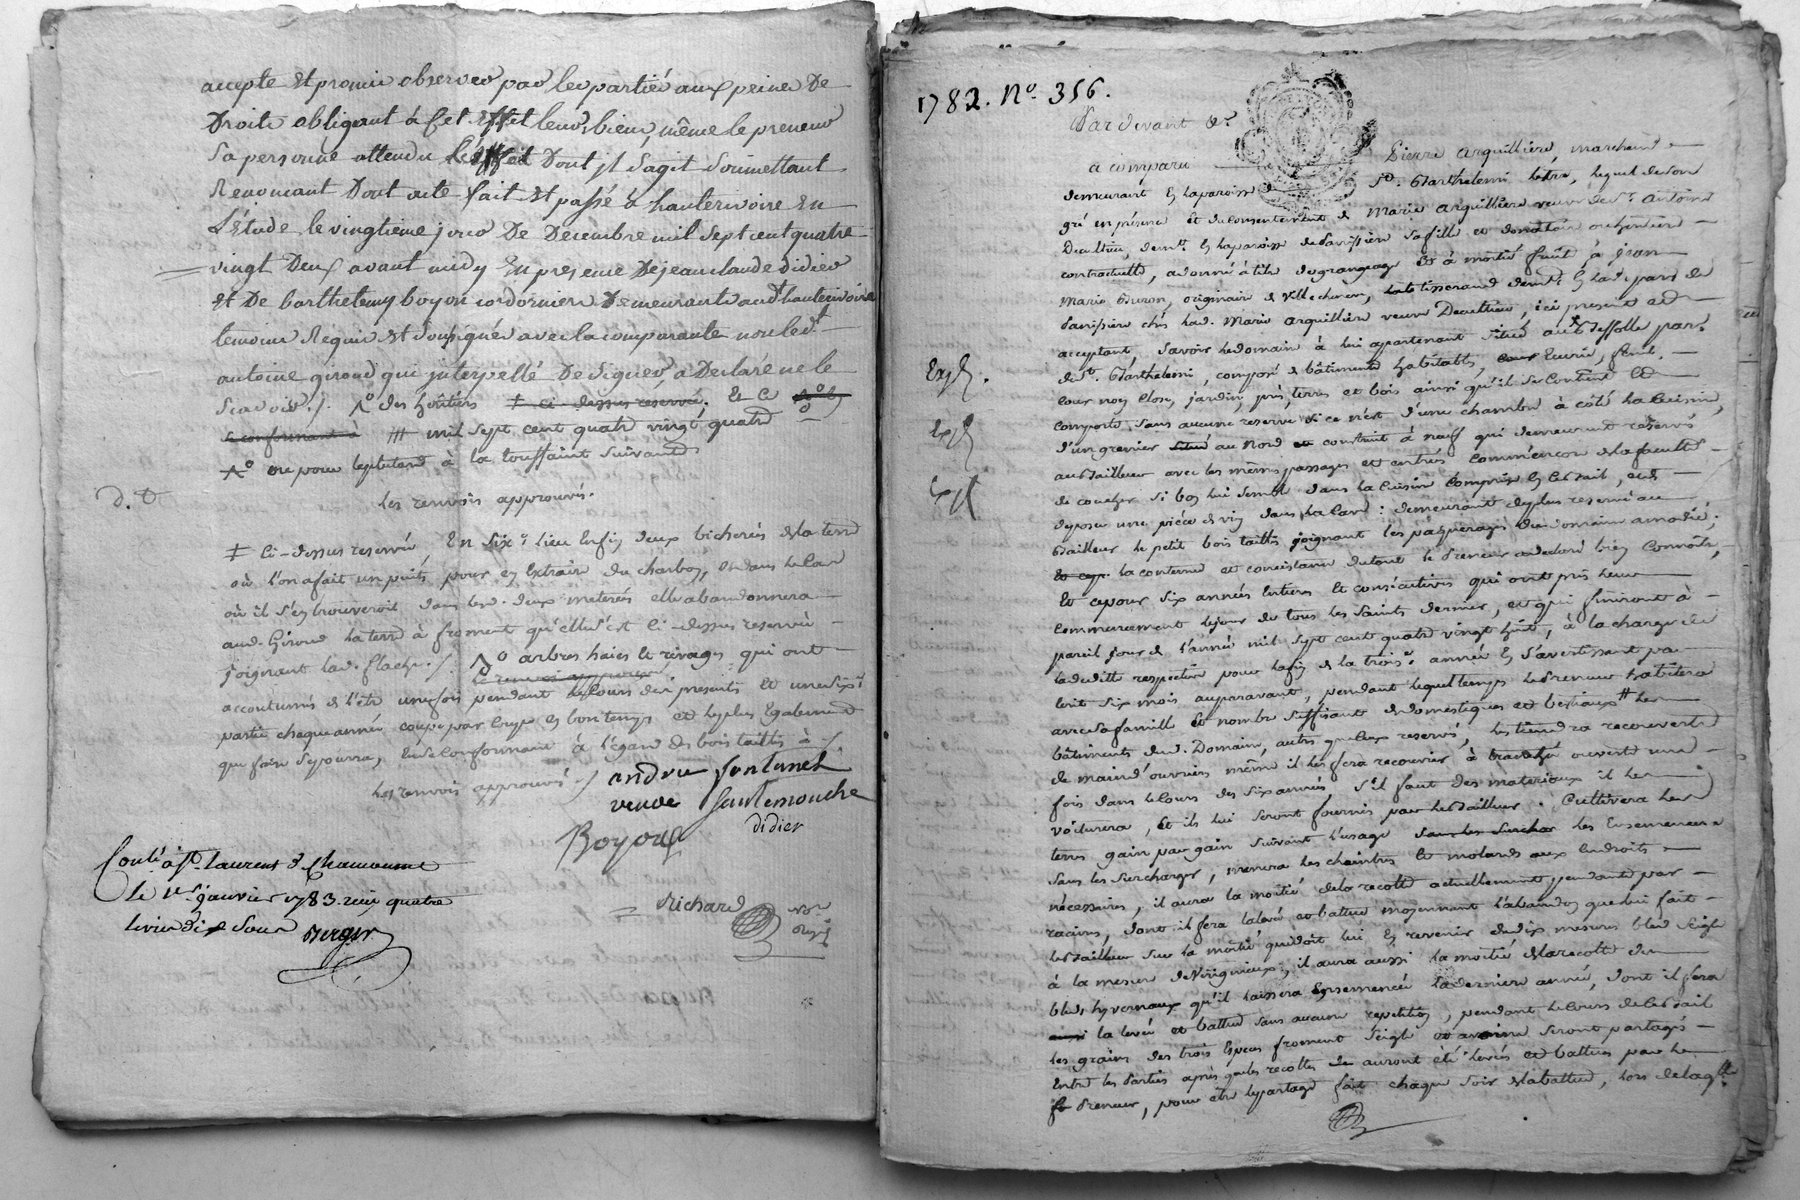 accepte et promis observer par les parties aux peines De
Droits obligeant à cet effet leurs biens, même le preneur
Sa personne attendu l'effet Dont il s'agit Soumettant
Renonceant Dont acte fait et passé à hauterivoire En
L'Étude le vingtième jour De Decembre mil sept cent quatre
vingt Deux avant midy En presence De jean claude didier
et De barthelemy boyon cordonnier Demeurants aud. hauterivoire
temoins Requis et Soussignés avec la comparante non led.t
antoine giroud qui interpellé De Signer, a Declaré ne le
Scavoir ./.
mil sept cent quatre vingt quatre
ou pour le plutard à la toussaint suivante
Les renvois approuvés.
D. D.
‡ Ci-dessus reservée, En Six.e lieu Enfin deux bicherées de la terre
où l'on a fait un puits pour en Extraire du charbon, et dans le cas
où il s'en trouveroit dans lesd. deux meterés elle abandonnera
aud. Giroud la terre à froment qu'elle s'est Ci-dessus reservée
joignant lad. flache ./. arbres haies et rivages qui ont
accoutumés de l'être une fois pendant le Cours des presents et une six.e
partie chaque année coupe par coupe en bon temps et le plus Egalement
que faire Se pourra, En Se Conformant à l'égard des bois taillis à ./.
Les renvois approuvés ./.
andrée fontanel
veuve Jantemouche
didier
Boyon
Cont.é à S.t Laurent de Chamousset
le 1.er janvier 1783. reçu quatre
livres dix Sous Berger
Richard
1782. N.o 356.
Pardevant &c.
a comparu Pierre arquillière, marchand
demeurant En la paroisse de S.t Barthelemi Lestra, lequel de son
gré en présence et du consentement de Marie arquillière veuve de S.r antoine
Decultieu, dem.t En la paroisse de Panissière Sa fille et donatrice
contractuelle, a donné à titre de grangeage et à moitié fruit à Jean
Marie Buron, originaire de Villechenève, tisserand dem.t En lad. par.sse de
Panissière chés lad. Marie arquillière veuve Decultieu, ici present et
acceptant, Savoir le domaine à lui appartenant Situé
de S.t Barthelemi, composé de bâtiments habitables, Ecurie, fenil,
cour non Close, jardin, près, terres et bois ainsi qu'il Se Contient et
comporte, Sans aucune reserve Si ce n'est d'une chambre à côté la Cuisine,
d'un grenier au Nord construit à neuf qui demeurent réservés
au Bailleur avec les mêmes passages et entrés comme encore de la faculté
de coucher Si bon lui Semble dans la Cuisine Comprise En Ce Bail, et de
deposer une pièce de vin dans la Cave : demeurant de plus reservé au
Bailleur le petit bois taillis joignant les pasquerages du domaine amodié ;
la contenue et consistance du tout le Preneur a declaré bien Connoître,
Et ce pour Six années Entieres Et consécutives qui ont pris leur
commencement le jour de tous les Saints dernier, et qui finiront à
pareil jour de l'année mil sept cent quatre vingt huit, à la charge de
led. dedite respective pour la fin de la trois.e année En S'avertissant par
écrit Six mois auparavant, pendant lequel temps le Preneur habitera
avec Sa famille Et nombre Suffisant de domestiques et bestiaux les
bâtiments dud. Domaine, autres que Ceux reservés, les tiendra recouverts
de main d'ouvriers même il les fera recouvrir à tranchée ouverte une
fois dans le Cours des Six années, S'il faut des materiaux il les
voiturera, Et ils lui Seront fournis par le Bailleur. Cultivera les
terres gain par gain Suivant l'usage les Ensemencera
Sans les Surcharger, menera les chaintres Et molards aux Endroits
nécessaires, il aura la moitié de la récolte actuellement pendante par
racines, dont il fera la levée et battue moyennant l'abandon que lui fait
le Bailleur Sur la moitié qui doit lui En revenir de dix mesures bled Seigle
à la mesure de Virigneux ; il aura aussi la moitié de la recolte des
bleds hyvernaux qu'il laissera Ensemencée la derniere année, dont il fera
la levée et battue Sans aucune repetition, pendant le Cours de Ce Bail
les grains des trois Especes froment Seigle et avoine Seront partagés
Entre les Parties après que les recoltes auront été levées et battues par le
Preneur, pour être le partage fait chaque Soir de la battue, lors de laq.lle